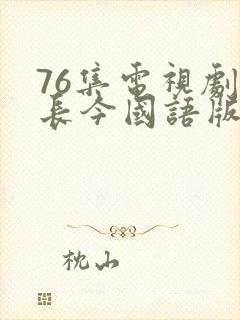 76集電視劇
長今國語版
枕山